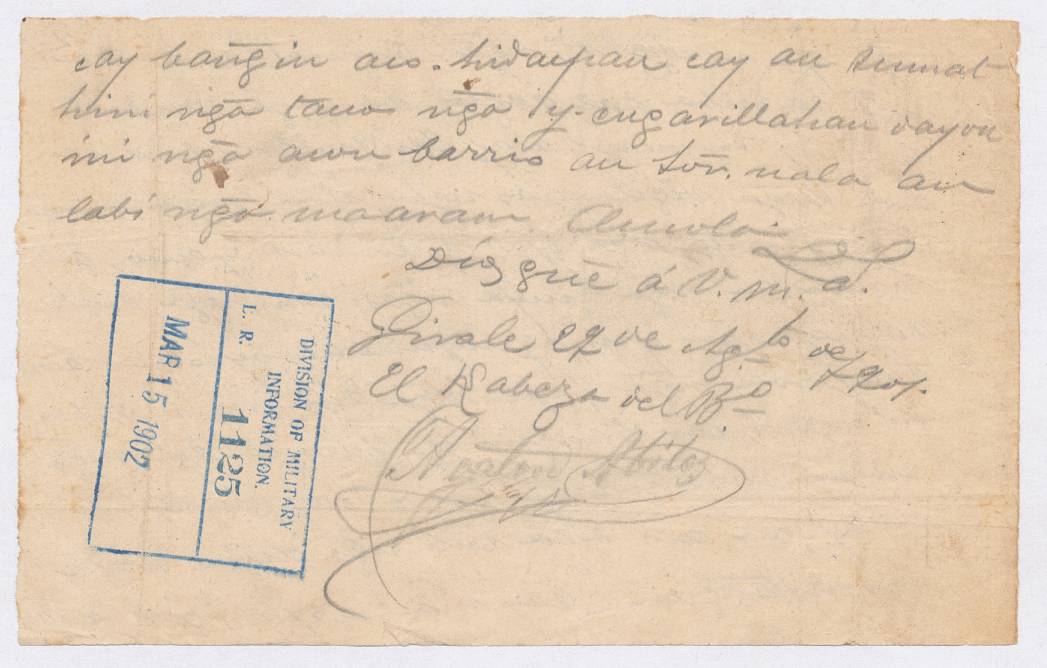 cay bangin aco. hidaipan cay an sumat
hini nga tauo nga y-cugarillahan dayon
ini nga acon barrio an Sor. nala an
labi nga maaram.
Dios gue á V. m. a.
27 de Agto de 1901.
El Kabeza del Bo
DIVISION OF MILITARY
INFORMATION.
L. R. 1125
MAR 15 1902